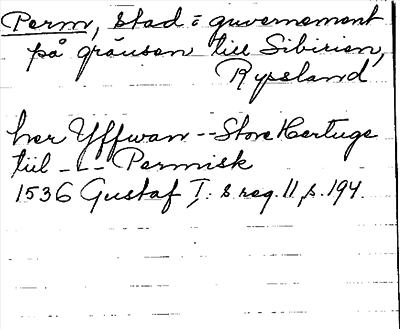 Perm, stad i guvernement
på gränsen till Sibirien,
Ryssland
her Yffwan -- Store Hertuge
tiil - - - Permisk
1536 Gustaf I:s reg. 11, s. 194.